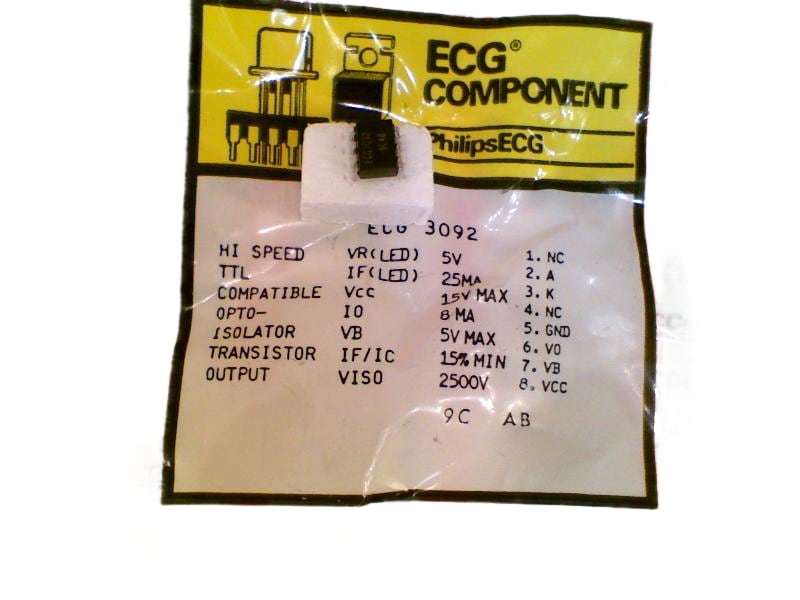 ECG®
COMPONENT
PhilipsECG
ECG 3092
HI SPEED VR(LED) 5V 1. NC
TTL IF(LED) 25MA 2. A
COMPATIBLE VCC 15V MAX 3. K
OPTO- IO 8 MA 4. NC
ISOLATOR VB 5V MAX 5. GND
TRANSISTOR IF/IC 15% MIN 6. VO
OUTPUT VISO 2500V 7. VB
8. VCC
9C AB